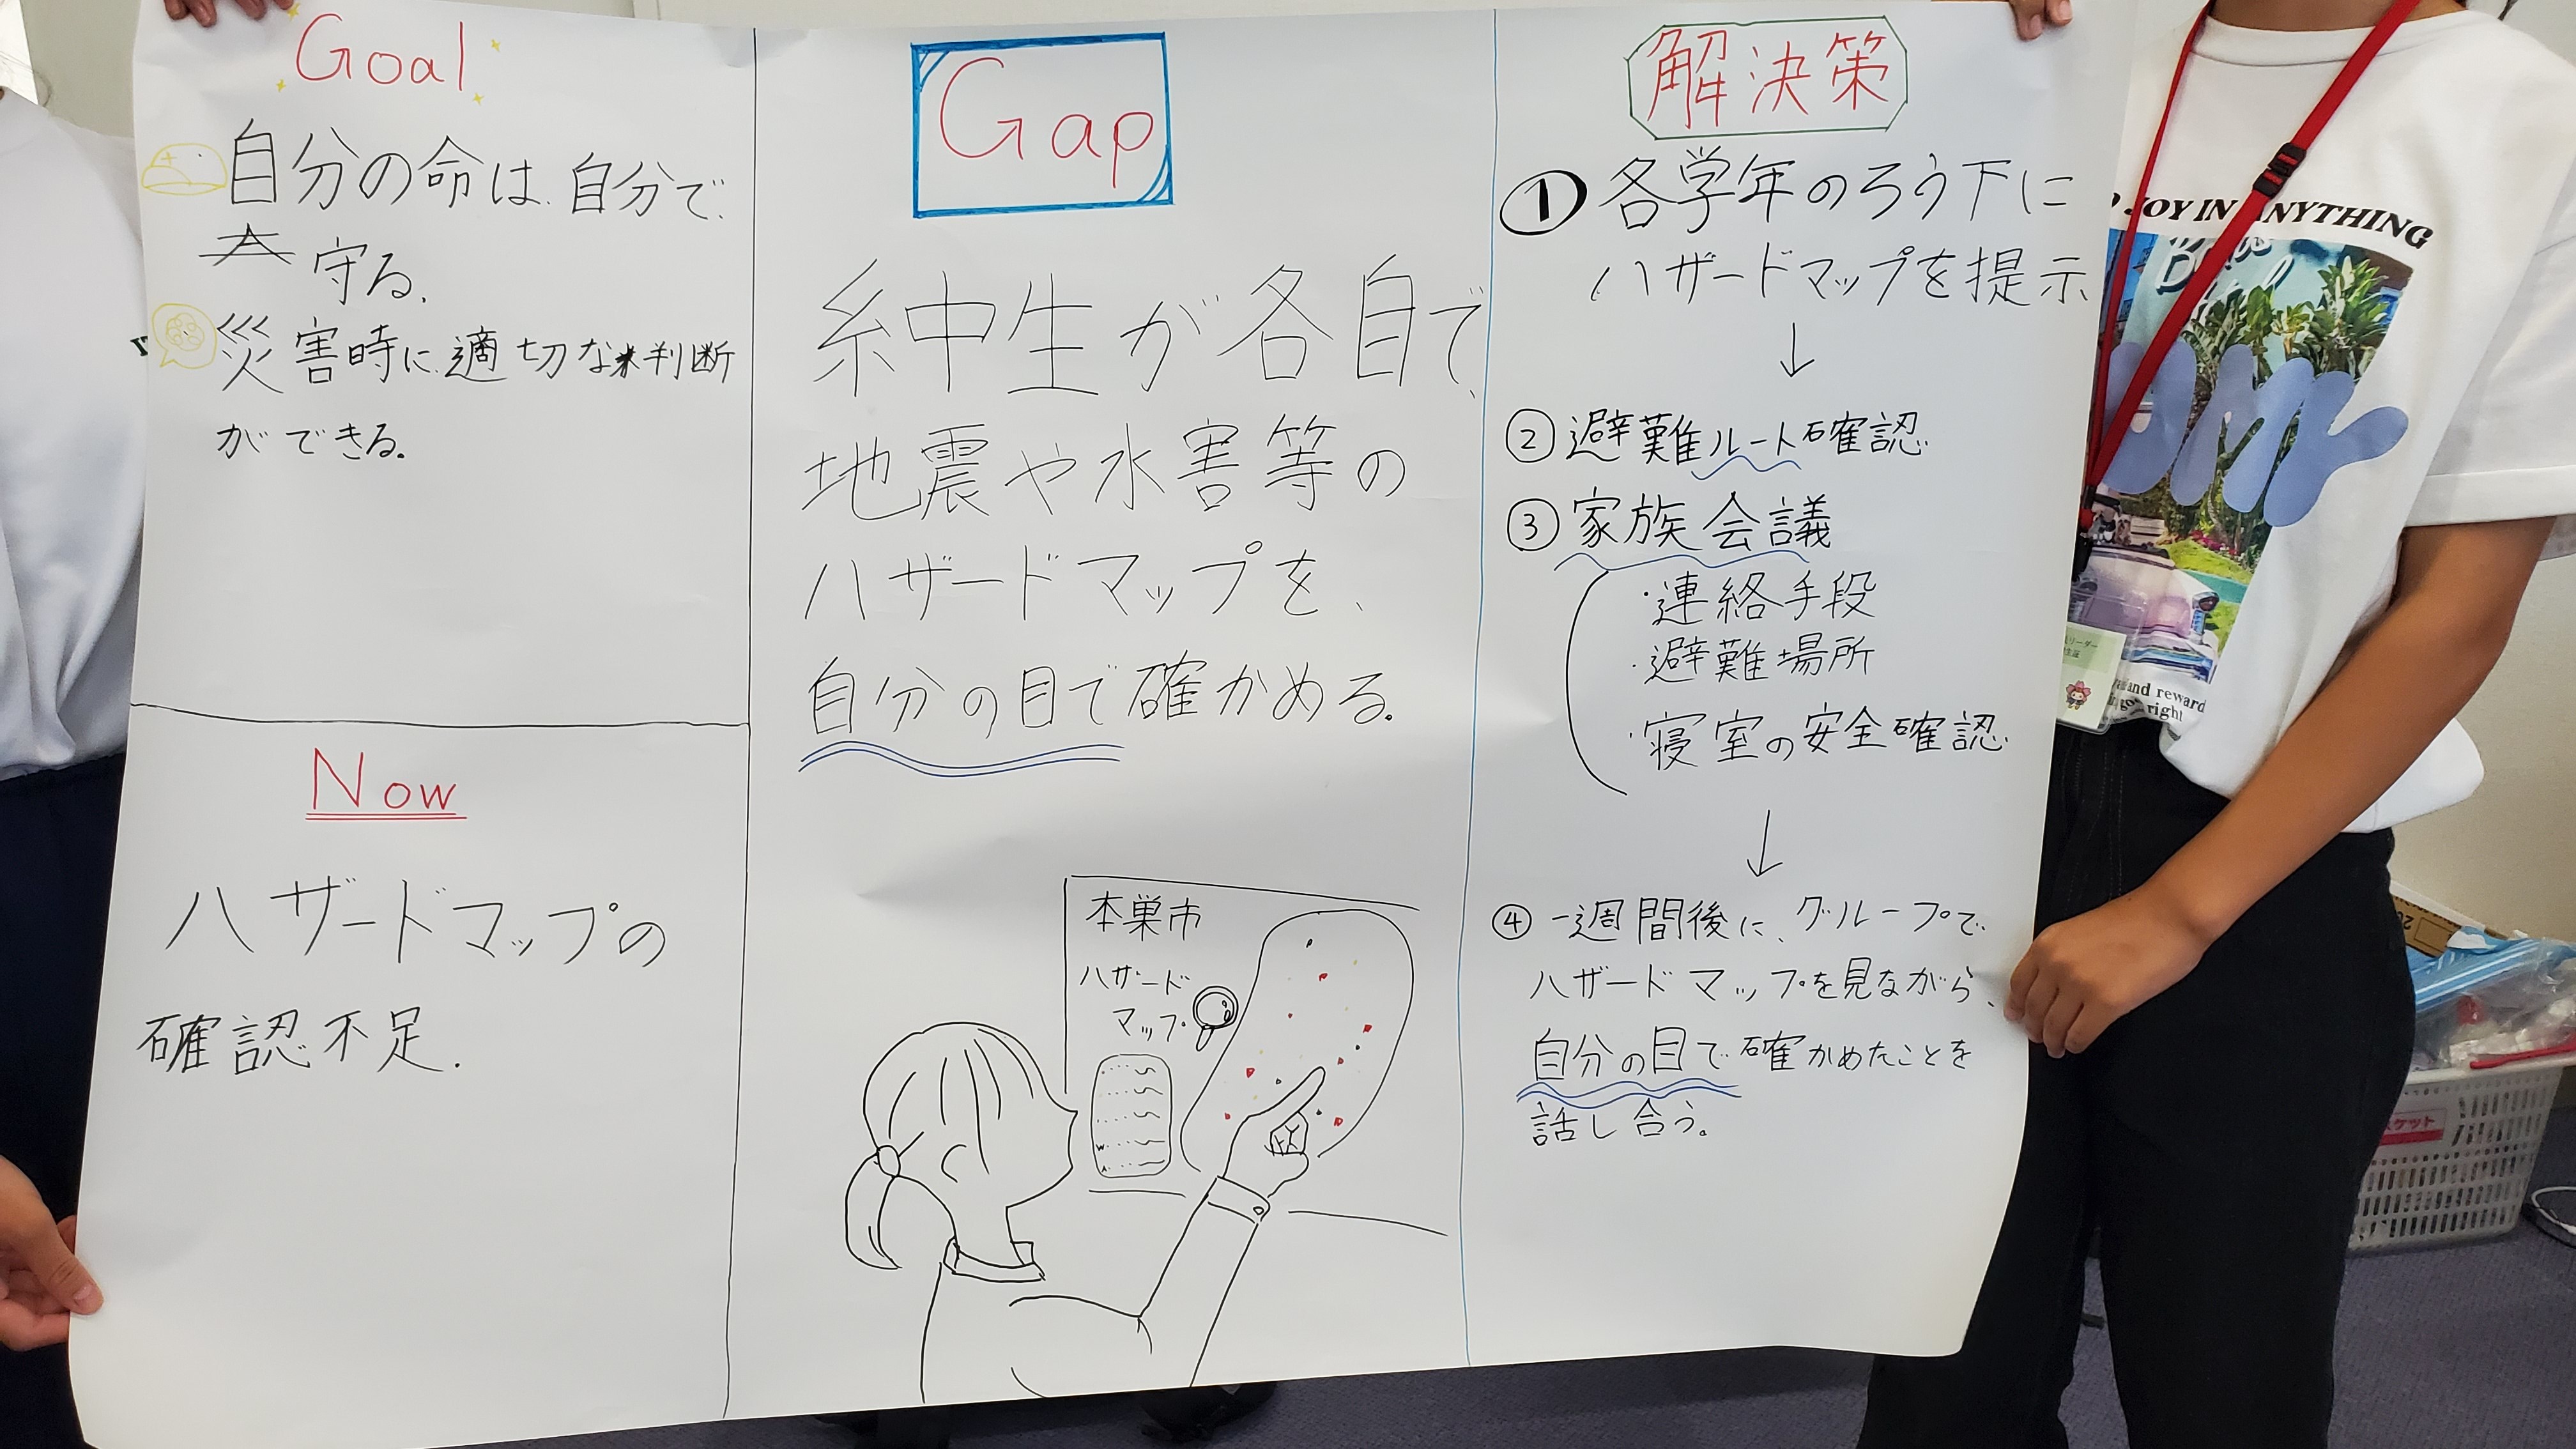 Goal
自分の命は、自分で
守る.
災害時に適切な判断
ができる。
Now
ハザードマップの
確認不足.
Gap
糸中生が各自で、
地震や水害等の
ハザードマップを、
自分の目で確かめる。
本巣市
ハザード
マップ
解決策
① 各学年のろう下に
ハザードマップを提示
↓
② 避難ルート確認
③ 家族会議
・連絡手段
・避難場所
・寝室の安全確認
↓
④ 一週間後に、グループで
ハザードマップを見ながら、
自分の目で確かめたことを
話し合う。
JOY IN ANYTHING
and reward
right